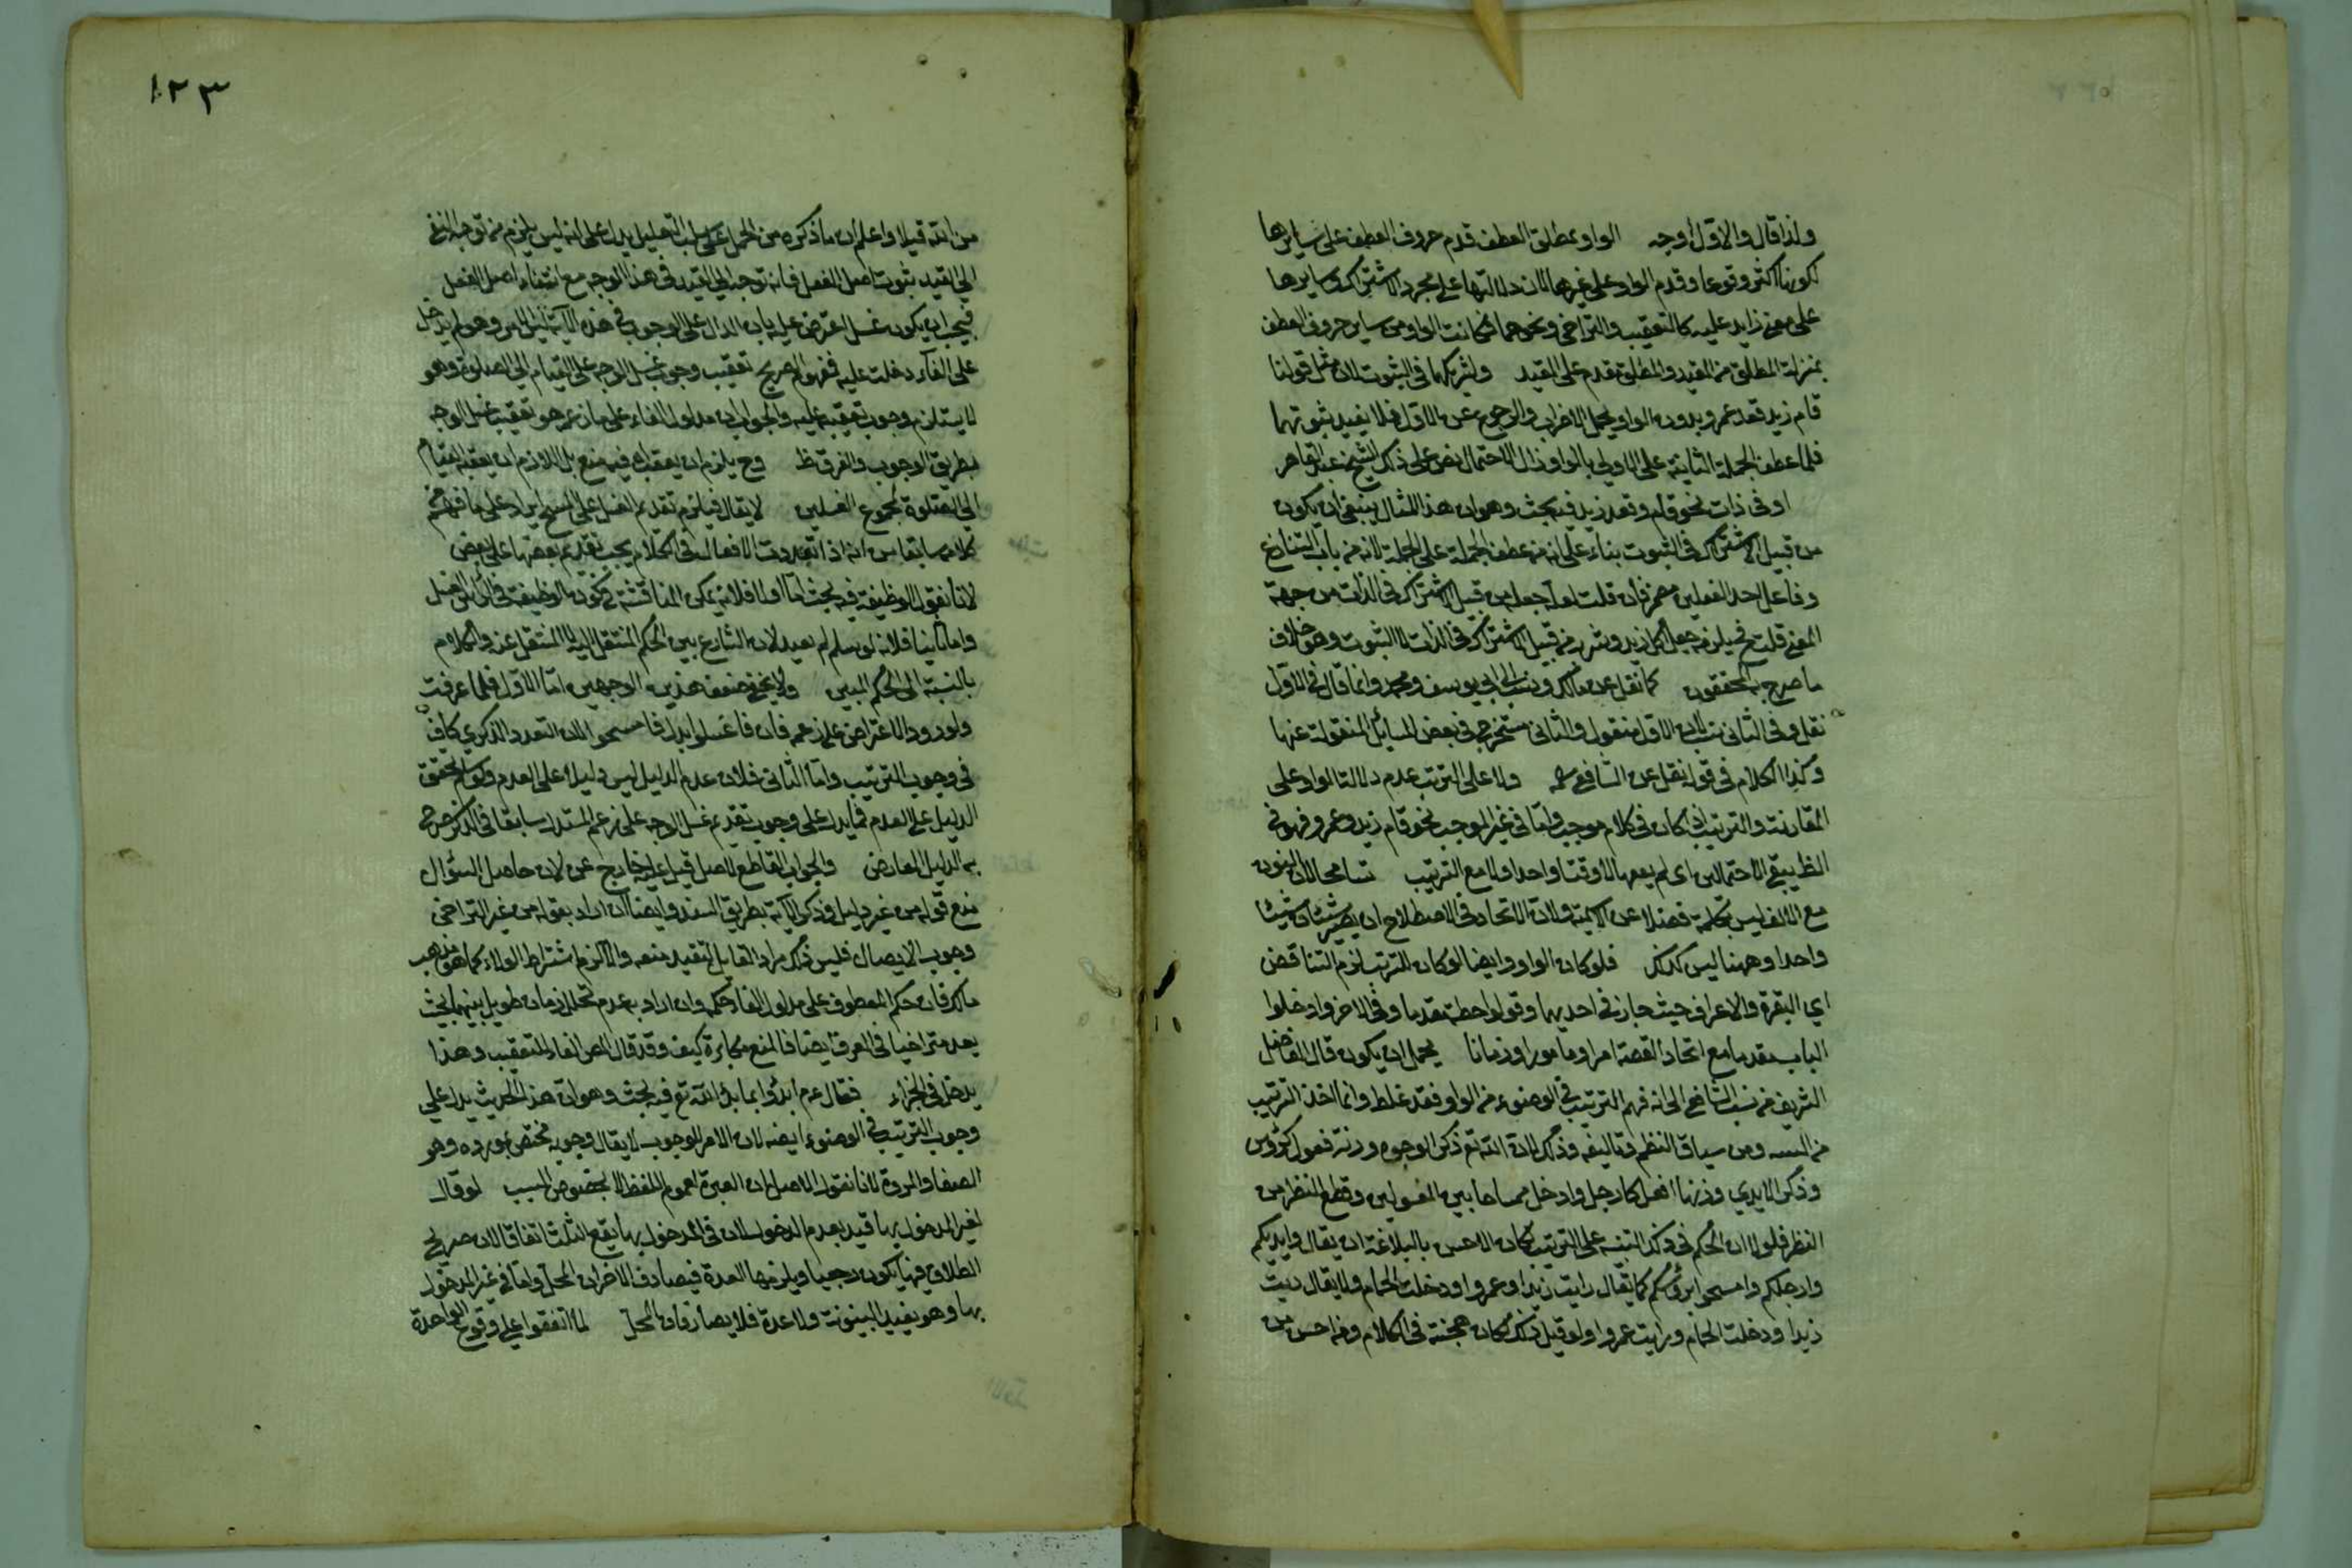 ولذا قال والاول اوجه الواو لمطلق العطف قدم حروف العطف على سايرها
لكونها اكثر وقوعا وقدم الواو على غيرها لان دلالتها على مجرد الاشتراك وسايرها
على معنى زايد عليه كالتعقيب والتراخي ونحوهما فكانت الواو من ساير حروف العطف
بمنزلة المطلق من المقيد والمطلق مقدم على المقيد ولشركهما في الثبوت لان مثل قولنا
قام زيد قعد عمرو بدون الواو يحمل الاضراب والرجوع عن الاول فلا يفيد ثبوتهما
فلما عطف الجملة الثانية على الاولى بالواو زال الاحتمال نص على ذلك الشيخ عبد القاهر
او في ذات نحو قام وقعد زيد فيه بحث وهو ان هذا المثال ينبغي ان يكون
من قبيل الاشتراك في الثبوت بناء على انه من عطف الجملة على الجملة لانه من باب التنازع
وفاعل احد الفعلين مضمر فان قلت لعله جعله من قبيل الاشتراك في الذات من جهة
المعنى قلت فح يلزمه جعل اكل زيد وشرب من قبيل الاشتراك في الذات لا الثبوت وهو خلاف
ما صرح به المحققون كما نقل عن مالك ونسب الى ابي يوسف ومحمد وانما قال في الاول
نقل وفي الثاني نسب لان الاول منقول والثاني مستخرج في بعض المسائل المنقولة عنهما
وكذا الكلام في قوله نقل عن الشافعي ولا على الترتيب عدم دلالة الواو على
المقارنة والترتيب ان كان في كلام موجب واما في غير الموجب نحو قام زيد وعمرو فهو في
الظ يبقى الاحتمالين اى لم يعمها لا وقتا واحدا ولا مع الترتيب تسامح لان النون
مع الالف ليس بكلمة فضلا عن الاسمية ولان الاتحاد في الاصطلاح ان يصير شيئان شيئا
واحدا وههنا ليس كذلك فلو كان الواو وايضا لو كان للترتيب لزم التناقض
اي البقرة والاعراف حيث جاز في احديهما وقولوا حطة مقدما وفي الاخر وادخلوا
الباب مقدما مع اتحاد القصة امرا ومامورا وزمانا يحمل ان يكون قال الفاضل
الشريف من نسب الشافعي الى انه فهم الترتيب في الوضوء من الواو فقد غلط وانما اخذ الترتيب
من السنة ومن سياق النظم وتاليفه وذلك لان الله تع ذكر الوجوه وزنه فعول كرؤس
وذكر الايدي وزنها افعل كارجل وادخل ممسوحا بين المغسولين وقطع النظر من
النظر فلولا ان الحكم في ذلك التنبيه على الترتيب لكان الاحسن بالبلاغة ان يقال وايديكم
وارجلكم وامسحوا برؤسكم كما يقال رايت زيدا وعمروا ودخلت الحمام ولا يقال رايت
زيدا ودخلت الحمام ورايت عمروا ولو قيل ذلك لكان هجنة في الكلام ومن احسن من
١٢٣
من الله قيلا واعلم ان ما ذكره من الحمل على سلب التعليل يدل على انه ليس يلزم من توجه النفي
الى القيد ثبوت اصل الفعل فانه توجه الى القيد في هذا الوجه مع انتفاء اصل الفعل
فيجب ان يكون غسل اعترض عليه بان الدال على الوجوب في هذه الاية ليس الا الامر وهو لم يدخل
على الفاء بل دخلت عليه فمفهومه الصريح تعقيب وجوب غسل الوجه على القيام الى الصلوة وهو
لا يستلزم وجوب تعقيبه عليه والجواب ان مدلول الفاء على ما زعم هو تعقيب غسل الوجه
بطريق الوجوب والفرق ظ وح يلزم ان يعقب فيه منع بل اللازم ان يعقب القيام
الى الصلوة مجموع الغسلين لا يقال فيلزم تقديم الغسل على المسح ايراد على ما فهم من
كلامه سابقا من انه اذا تعددت الافعال في الكلام يجب تقديم بعضها على بعض
لانا نقول الوظيفة فيه بحث اما اولا فلانه يمكن المناقشة في كون الوظيفة في الراس الغسل
واما ثانيا فلانه لو سلم لم يعيد لان الشارع بين الحكم المنتقل اليه لا المنتقل عنه والكلام
بالنسبة الى الحكم المبين ولا يخفى ضعف هذين الوجهين اما الاول فلما عرفت
ولورود الاعتراض على زعمه فان فاغسلوا يدل فامسحوا لان التعدد الذكري كاف
في وجوب الترتيب واما الثاني فلان عدم الدليل ليس دليلا على العدم ولو سلم تحقق
الدليل على العدم فما يدل على وجوب تقديم غسل الوجه على زعم المستدل سابقا في الذكر
به الدليل المعارض والجواب القاطع لاصل قيل عليه خارج عن لان حاصل السؤال
منع قوله من غير دليل وذكر الاية بطريق السند وايضا ان اراد بقوله من غير التراخي
وجوب الايصال فليس ذلك مراد القايل التقييد منعه والا لزم اشتراط الولاء كما هو مذهب
مالك فان حكم المعطوف على مدلول الفاء حكمه وان اراد به عدم تخلل زمان طويل بينهما بحيث
يعد متراخيا في العرف ايضا فالمنع مكابرة كيف وقد قال المص الفاء للتعقيب وهذا
يدخل في الجزاء فقال عم ابدؤا بما بدأ الله تع فيه بحث وهو ان هذا الحديث يدل على
وجوب الترتيب في الوضوء ايضا لان الامر للوجوب لا يقال وجوبه مختص بمورده وهو
الصفا والمروة لانا نقول الاصل ان العبرة لعموم اللفظ لا بخصوص السبب لو قال
لغير المدخول بها قيد بعدم الدخول لان في المدخول بها يقع الثلث اتفاقا لان صريح
الطلاق فيها يكون رجعيا ويلزمها العدة فيصادف الاخران المحل واما في غير المدخول
بها وهو يفيد البينونة ولا عدة فلا يصادفان المحل لما اتفقوا على وقوع الواحدة